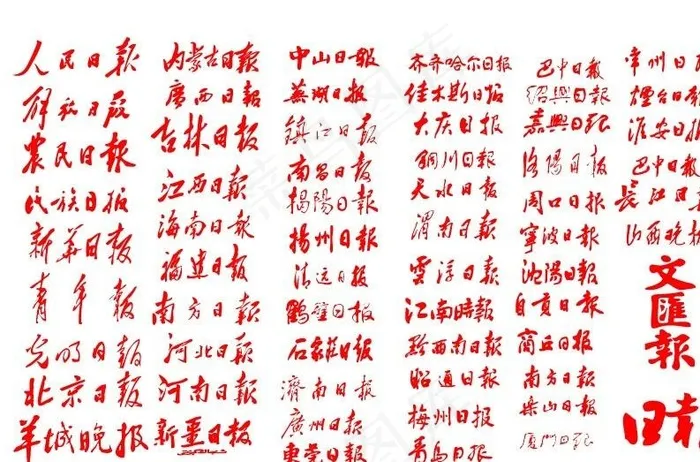 人民日報
解放日报
農民日報
民族日报
新華日報
青年報
光明日報
北京日報
羊城晚报
内蒙古日報
廣西日報
吉林日報
江西日報
海南日报
福建日报
南方日報
河北日報
河南日報
新疆日报
中山日報
蕪湖日报
鎮江日報
南昌日報
揭陽日報
揚州日報
清远日报
鶴壁日报
石家莊日報
濟南日报
廣州日報
東莞日报
齐齐哈尔日报
佳木斯日报
大庆日报
銅川日報
天水日报
渭南日报
雲浮日報
江南時報
黔西南日報
昭通日報
梅州日报
青岛日报
巴中日报
绍興日報
嘉興日报
洛陽日報
周口日报
寧波日报
沈陽日報
自貢日報
商丘日报
南方日報
乐山日报
厦门日报
常州日
煙台日
淮安日
巴中日
長江日
山西晚报
文匯報
日